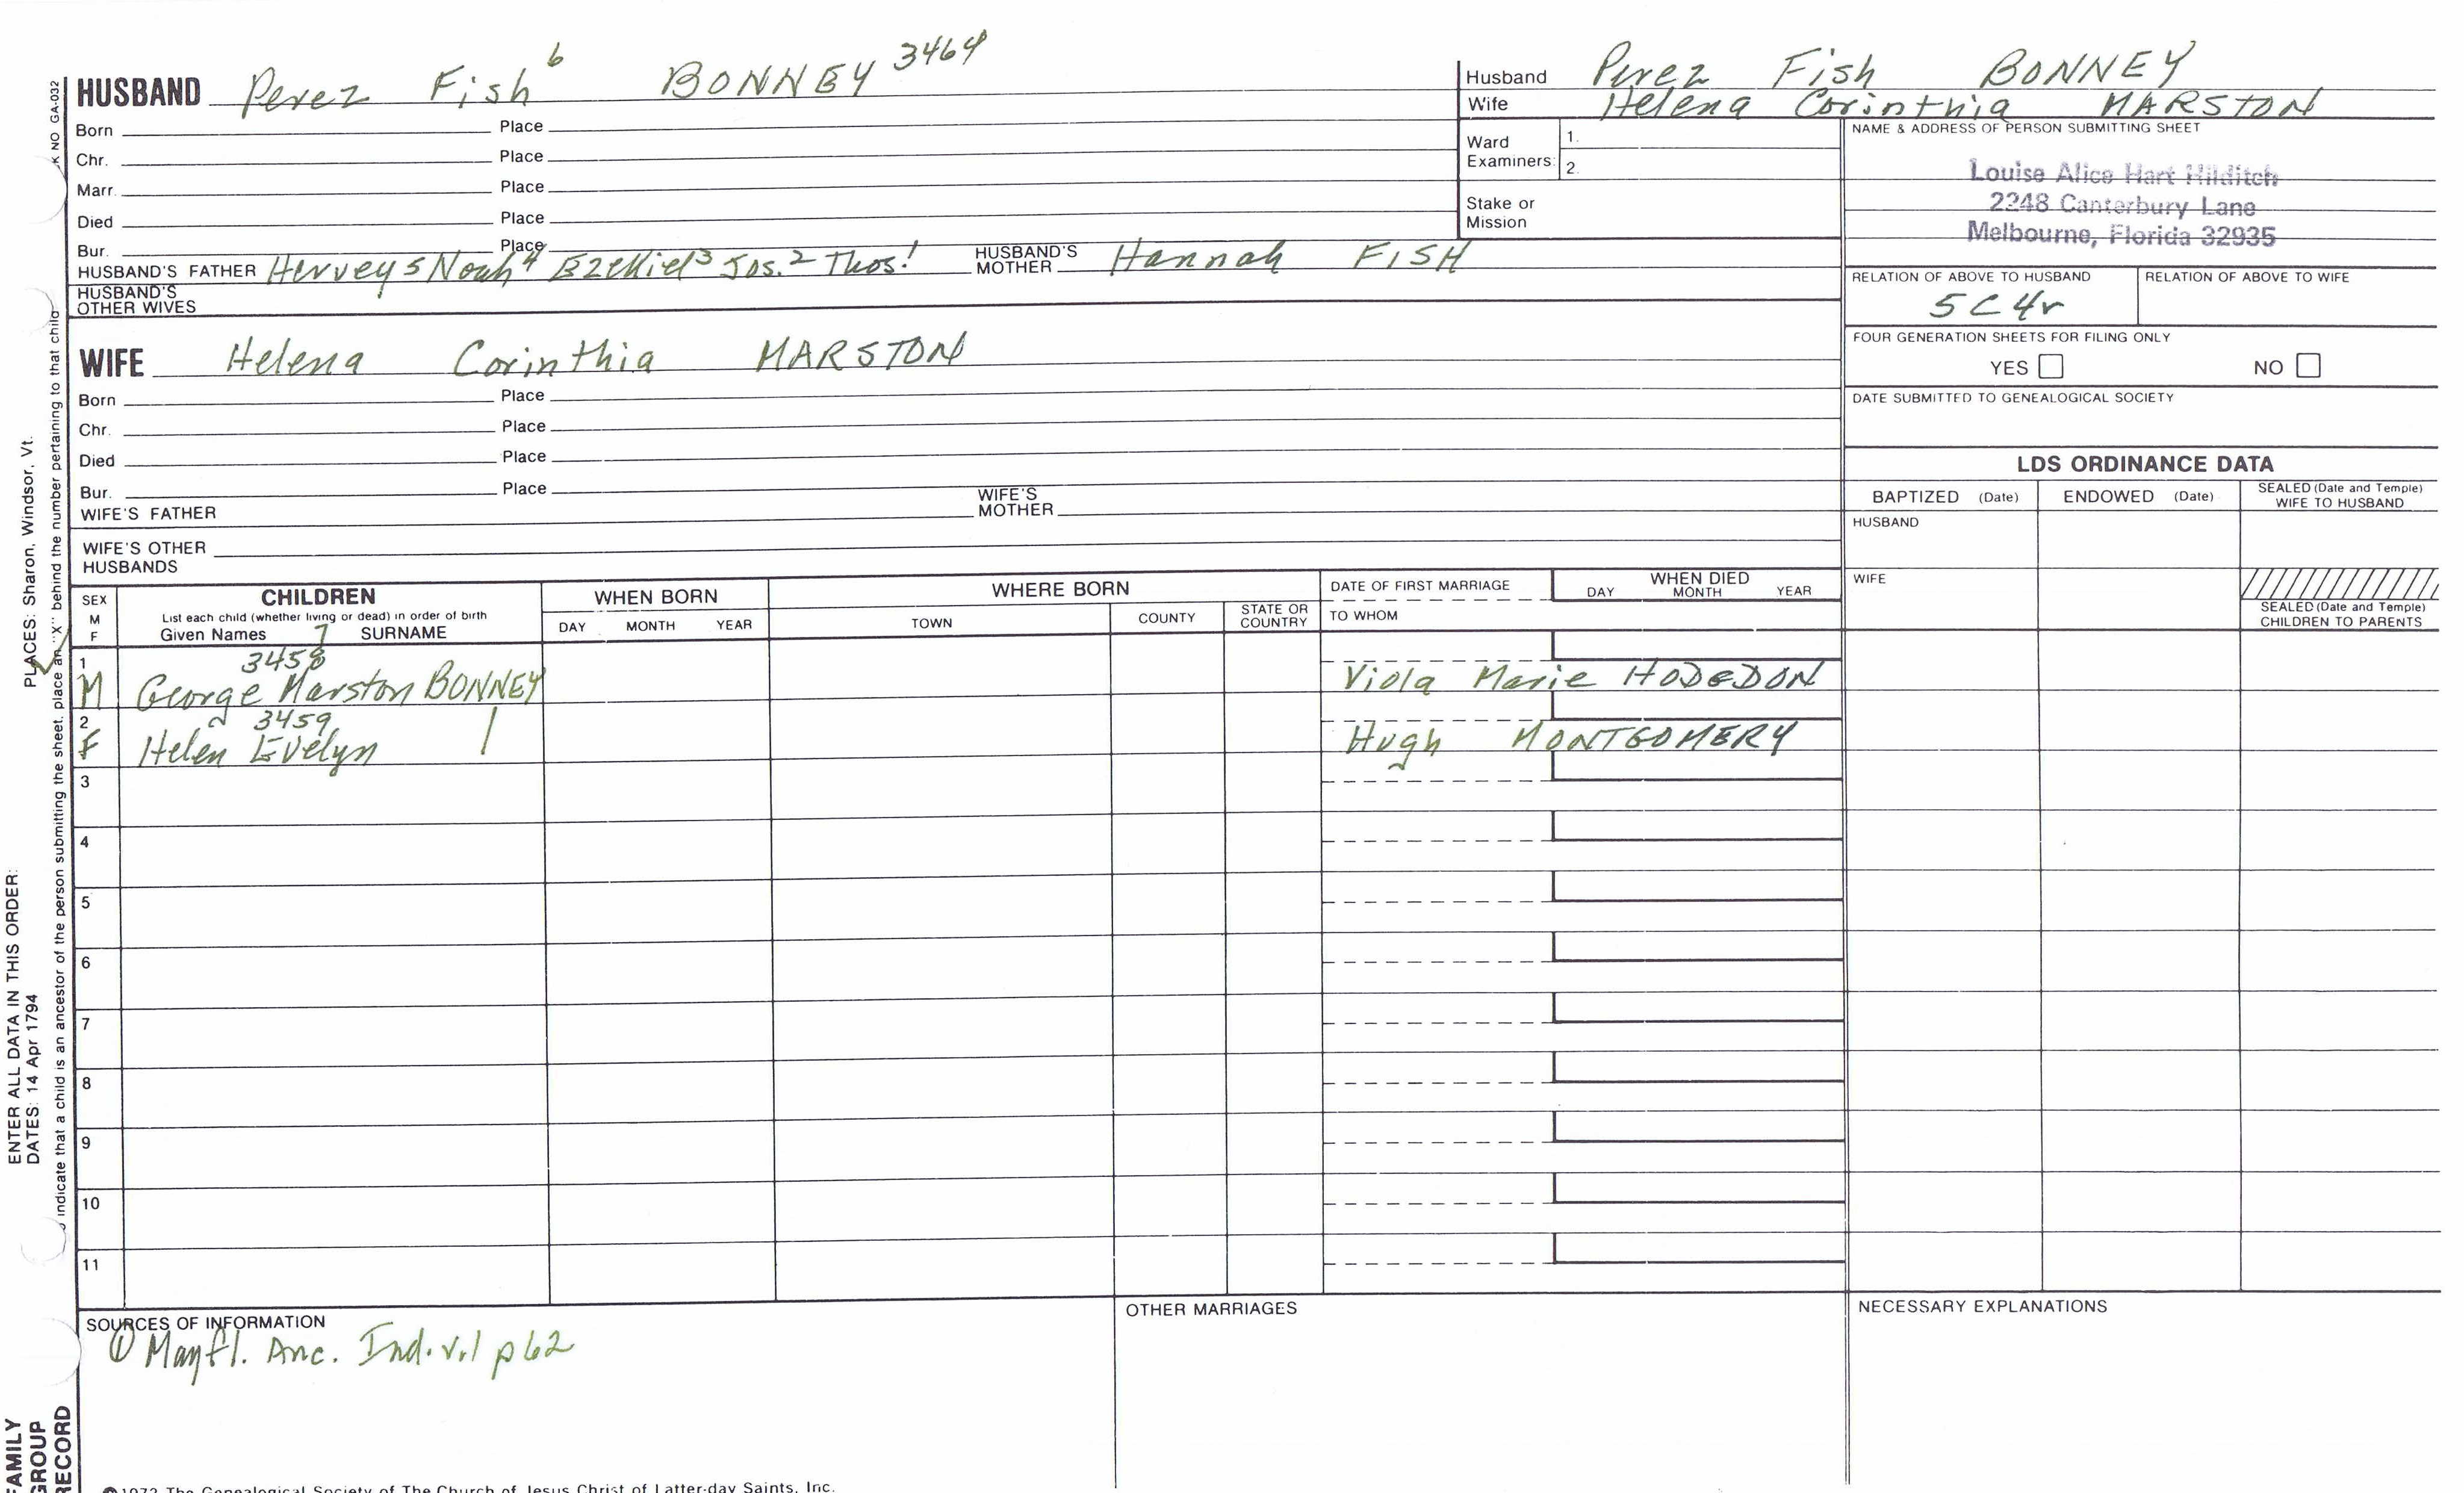 HUSBAND Perez Fish 6 BONNEY 3464
Born Place
Chr. Place
Marr. Place
Died Place
Bur. Place
HUSBAND'S FATHER Hervey 5 Noah 4 Ezekiel 3 Jos. 2 Thos. 1 HUSBAND'S MOTHER Hannah FISH
HUSBAND'S OTHER WIVES
WIFE Helena Corinthia MARSTON
Born Place
Chr. Place
Died Place
Bur. Place
WIFE'S FATHER WIFE'S MOTHER
WIFE'S OTHER HUSBANDS
Husband Perez Fish BONNEY
Wife Helena Corinthia MARSTON
Ward Examiners: 1. 2.
Stake or Mission
NAME & ADDRESS OF PERSON SUBMITTING SHEET
Louise Alice Hart Hilditch
2248 Canterbury Lane
Melbourne, Florida 32935
RELATION OF ABOVE TO HUSBAND RELATION OF ABOVE TO WIFE
5C4r
FOUR GENERATION SHEETS FOR FILING ONLY
YES NO
DATE SUBMITTED TO GENEALOGICAL SOCIETY
LDS ORDINANCE DATA
BAPTIZED (Date) ENDOWED (Date) SEALED (Date and Temple) WIFE TO HUSBAND
HUSBAND
WIFE
SEALED (Date and Temple) CHILDREN TO PARENTS
SEX M F CHILDREN WHEN BORN WHERE BORN DATE OF FIRST MARRIAGE WHEN DIED
List each child (whether living or dead) in order of birth
Given Names 7 SURNAME DAY MONTH YEAR TOWN COUNTY STATE OR COUNTRY TO WHOM DAY MONTH YEAR
1 3458
M George Marston BONNEY Viola Marie HODGDON
2 3459
F Helen Evelyn Hugh MONTGOMERY
3
4
5
6
7
8
9
10
11
SOURCES OF INFORMATION OTHER MARRIAGES NECESSARY EXPLANATIONS
① Mayfl. Anc. Ind. v.1 p62
©1972 The Genealogical Society of The Church of Jesus Christ of Latter-day Saints, Inc.
K NO GA-032
indicate that a child is an ancestor of the person submitting the sheet, place an "X" behind the number pertaining to that child
ENTER ALL DATA IN THIS ORDER:
DATES: 14 Apr 1794 PLACES: Sharon, Windsor, Vt.
FAMILY
GROUP
RECORD